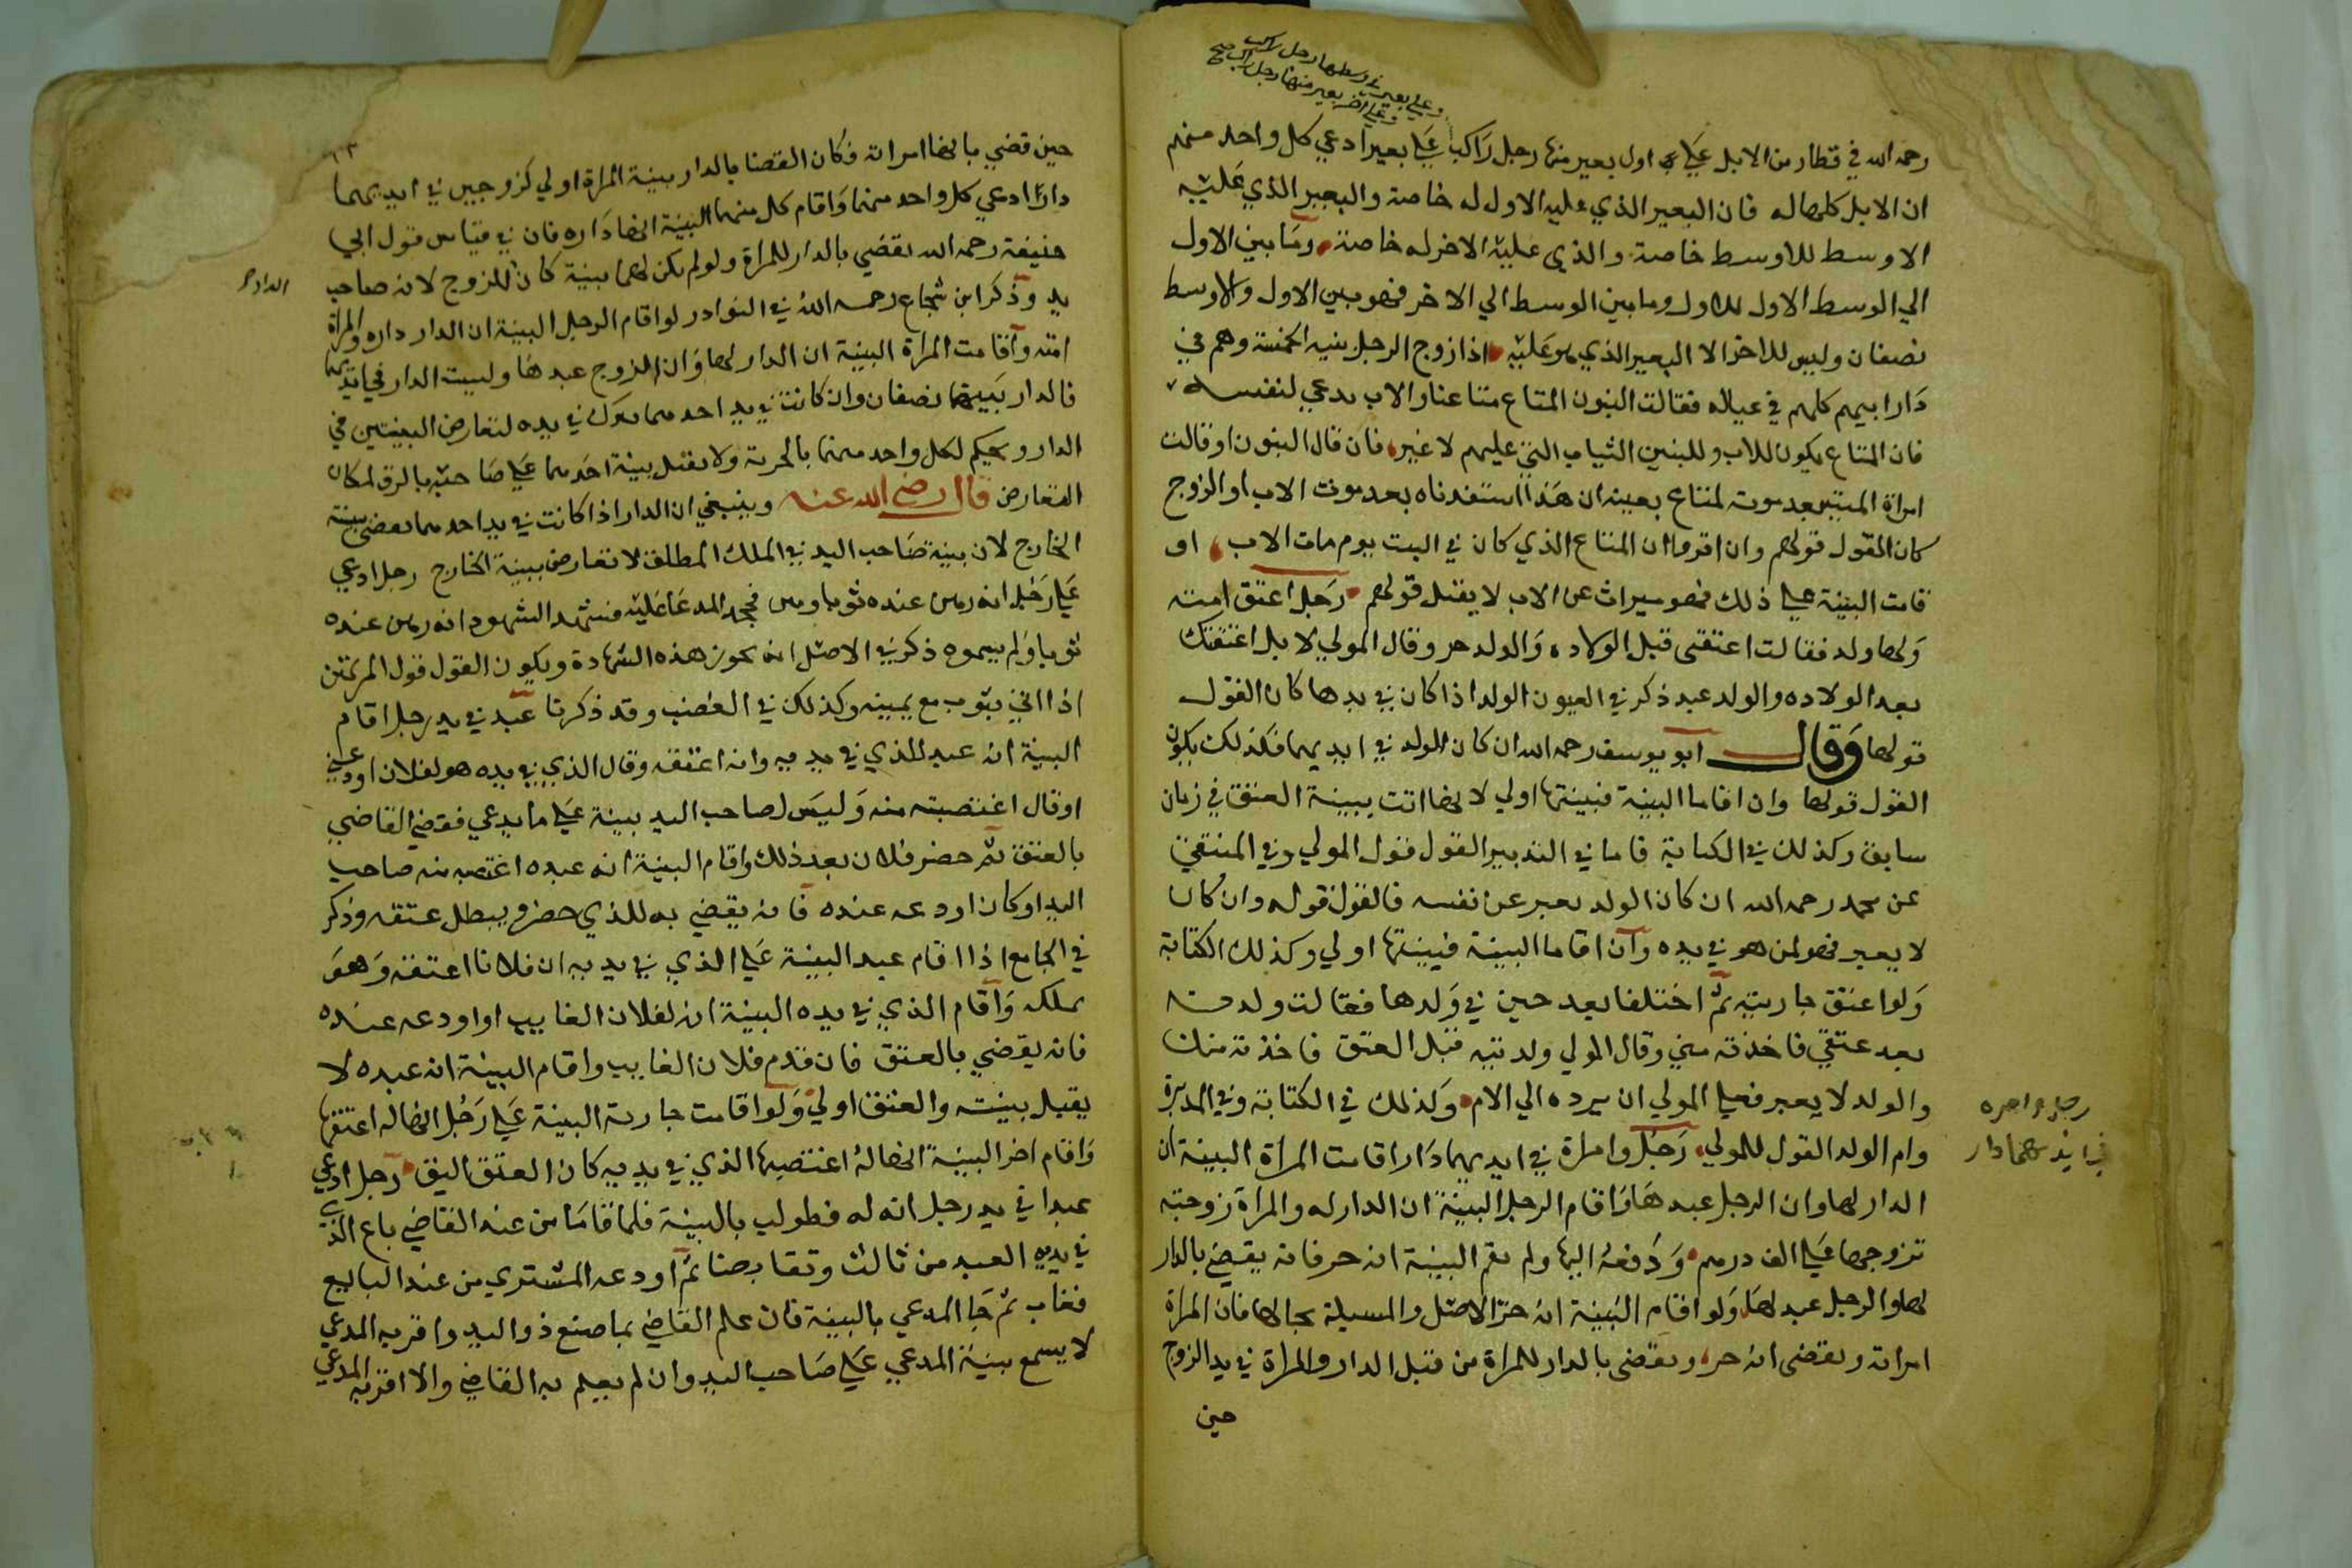 وعلي بعير في وسطها رجل راكب
وعلي اخر بعير منها رجل راكب صح
رحمه الله في قطار من الابل علي اول بعير منها رجل راكب علي بعير ادعي كل واحد منهم
ان الابل كلها له فان البعير الذي عليه الاول له خاصة والبعير الذي عليه
الاوسط للاوسط خاصة والذي عليه الاخر له خاصة وما بين الاول
الي الوسط الاول للاول وما بين الوسط الي الاخر فهو بين الاول والاوسط
نصفان وليس للاخر الا البعير الذي هو عليه اذا زوج الرجل بنيه الخمسة وهم في
دار ابيهم كلهم في عياله فقالت البنون المتاع متاعنا والاب يدعي لنفسه
فان المتاع يكون للاب وللبنين الثياب التي عليهم لا غير فان قال البنون او قالت
امراة الميت بعد موته لمتاع بعينه ان هذا استفدناه بعد موت الاب او الزوج
كان القول قولهم وان اقروا ان المتاع الذي كان في البيت يوم مات الاب او
قامت البينة علي ذلك فهو ميراث عن الاب لا يقبل قولهم رجل اعتق امته
ولها ولد فقالت اعتقتني قبل الولاده والولد حر وقال المولي لا بل اعتقتك
بعد الولاده والولد عبد ذكر في العيون الولد اذا كان في يدها كان القول
قولها وقال ابو يوسف رحمه الله ان كان الولد في ايديهما فكذلك يكون
القول قولها وان اقاما البينة فبينتها اولي لانها اتت ببينة العتق في زمان
سابق وكذلك في الكتابة فاما في التدبير القول قول المولي وفي المنتقي
عن محمد رحمه الله ان كان الولد يعبر عن نفسه فالقول قوله وان كان
لا يعبر فهو لمن هو في يده وان اقاما البينة فبينتها اولي وكذلك الكتابة
ولو اعتق جاريته ثم اختلفا بعد حين في ولدها فقالت ولدته
بعد عتقي فاخذته مني وقال المولي ولدتيه قبل العتق فاخذته منك
والولد لا يعبر فعلي المولي ان يرده الي الام وكذلك في الكتابة وفي المدبرة
وام الولد القول للمولي رجل وامراة في ايديهما دار اقامت المراة البينة ان
الدار لها وان الرجل عبدها واقام الرجل البينة ان الدار له والمراة زوجته
تزوجها علي الف درهم ودفعه اليها ولم يقم البينة انه حر فانه يقضي بالدار
لها والرجل عبد لها ولو اقام البينة انه حر الاصل والمسيلة بحالها فان المراة
امراته ويقضي انه حر ويقضي بالدار للمراة من قبل الدار والمراة في يد الزوج
حين
رجل وامره
في ايديهما دار
حين قضي بانها امراته فكان القضا بالدار ببينة المراة اولي كزوجين في ايديهما
دار ادعي كل واحد منهما واقام كل منهما البينة انها داره فان في قياس قول ابي
حنيفة رحمه الله يقضي بالدار للمراة ولو لم يكن لهما بينة كان للزوج لانه صاحب
يد وذكر ابن شجاع رحمه الله في النوادر لو اقام الرجل البينة ان الدار داره والمراة
امته واقامت المراة البينة ان الدار لها وان الزوج عبدها وليست الدار في ايديهما
فالدار بينهما نصفان وان كانت في يد احدهما يترك في يده لتعارض البينتين في
الدار ويحكم لكل واحد منهما بالحرية ولا يقبل بينة احدهما علي صاحبه بالرق لمكان
التعارض قال رضي الله عنه وينبغي ان الدار اذا كانت في يد احدهما يقضي ببينة
الخارج لان بينة صاحب اليد في الملك المطلق لا تعارض ببينة الخارج رجل ادعي
علي رجل انه رهن عنده ثوبا وهن فجحد المدعا عليه فشهد الشهود انه رهن عنده
ثوبا ولم يسموه ذكر في الاصل انه يجوز هذه الشهادة ويكون القول قول المرتهن
اذا اتي بثوب مع يمينه وكذلك في الغصب وقد ذكرنا عبد في يد رجل اقام
البينة انه عبد للذي في يديه وانه اعتقه وقال الذي في يده هو لفلان اودعني
او قال اغتصبته منه وليس لصاحب اليد بينة علي ما يدعي فقضي القاضي
بالعتق ثم حضر فلان بعد ذلك واقام البينة انه عبده اغتصبه منه صاحب
اليد او كان اودعه عنده فانه يقضي به للذي حضر ويبطل عتقه وذكر
في الجامع اذا اقام عبد البينة علي الذي في يديه ان فلانا اعتقه وهو
يملكه واقام الذي في يده البينة انه لفلان الغايب او اودعه عنده
فانه يقضي بالعتق فان قدم فلان الغايب واقام البينة انه عبده لا
يقبل بينته والعتق اولي ولو اقامت جارية البينة علي رجل انها له اعتقها
واقام اخر البينة انها له اغتصبها الذي في يديه كان العتق اليق رجل ادعي
عبدا في يد رجل انه له فطولب بالبينة فلما قاما من عند القاضي باع الذي
في يديه العبد من ثالث وتقابضا ثم اودعه المشتري من عند البايع
فغاب ثم جا المدعي بالبينة فان علم القاضي بما صنع ذو اليد واقر به المدعي
لا يسمع بينة المدعي علي صاحب اليد وان لم يعلم به القاضي والا اقر به المدعي